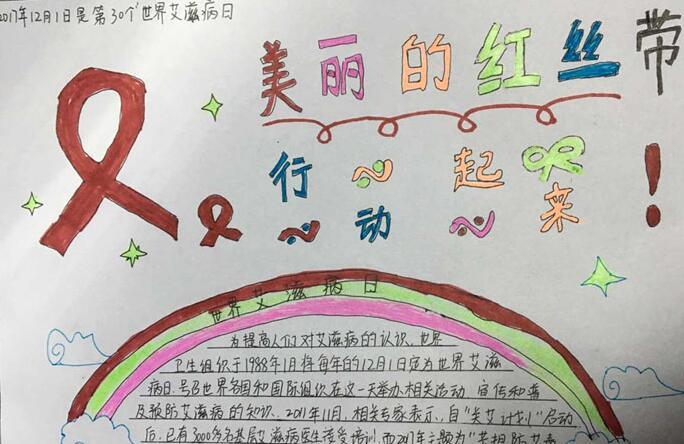 2017年12月1日是第30个世界艾滋病日
美丽的红丝带
行动起来!
世界艾滋病日
为提高人们对艾滋病的认识,世界
卫生组织于1988年1月将每年的12月1日定为世界艾滋
病日,号召世界各国和国际组织在这一天举办相关活动,宣传和普
及预防艾滋病的知识。2011年11月,相关专家表示,自"关艾计划"启动
后,已有3000多名基层艾滋病医生接受培训,而2017年主题为